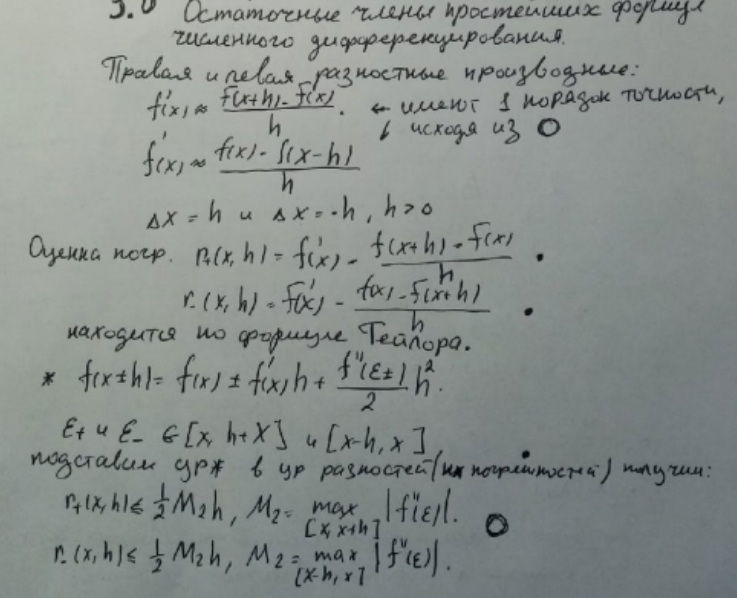 3.0 Остаточные члены простейших формул
численного дифференцирования.
Правая и левая разностные производные:
f'(x) ≈ (f(x+h) - f(x))/h . ← имеют 1 порядок точности,
исходя из O
f'(x) ≈ (f(x) - f(x-h))/h
Δx = h и Δx = -h, h > 0
Оценка погр. r₊(x,h) = f'(x) - (f(x+h) - f(x))/h .
r₋(x,h) = f'(x) - (f(x) - f(x+h))/h .
находится по формуле Тейлора.
* f(x±h) = f(x) ± f'(x)h + (f''(ε±)/2) h².
ε₊ и ε₋ ∈ [x, h+x] и [x-h, x]
подставим ур* в ур разностей (их погрешностей) получим:
r₊(x,h) ≤ ½ M₂h, M₂ = max [x, x+h] |f''(ε)|. O
r₋(x,h) ≤ ½ M₂h, M₂ = max [x-h, x] |f''(ε)|.